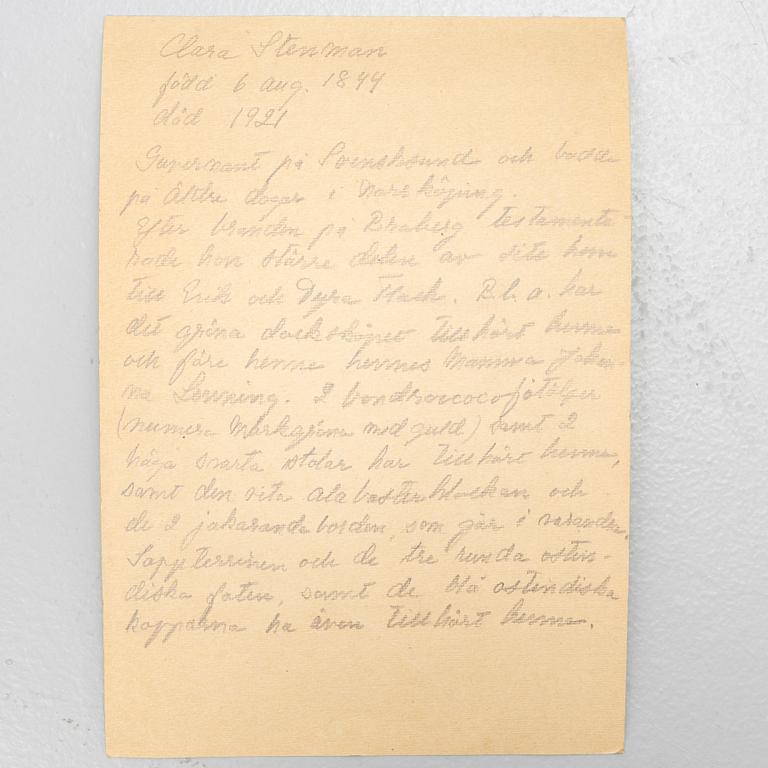 Clara Stenman
född 6 aug. 1844
död 1921
Guvernant på Svensksund och bodde
på äldre dagar i Norrköping.
Efter branden på Braberg testamente
rade hon större delen av sitt hem
till Erik och Dyra Flach. Bl. a. har
det gröna dockskåpet tillhört henne
och före henne hennes Mamma Johan-
na Lönning. 2 bondrococofåtöljer
(numera Mörkgröna med guld) samt 2
höga svarta stolar har tillhört henne,
samt den vita alabasterklockan och
de 2 jakarandaborden, som går i varandra.
Soppterrinen och de tre runda ostin-
diska faten, samt de blå ostindiska
kopparna ha även tillhört henne.